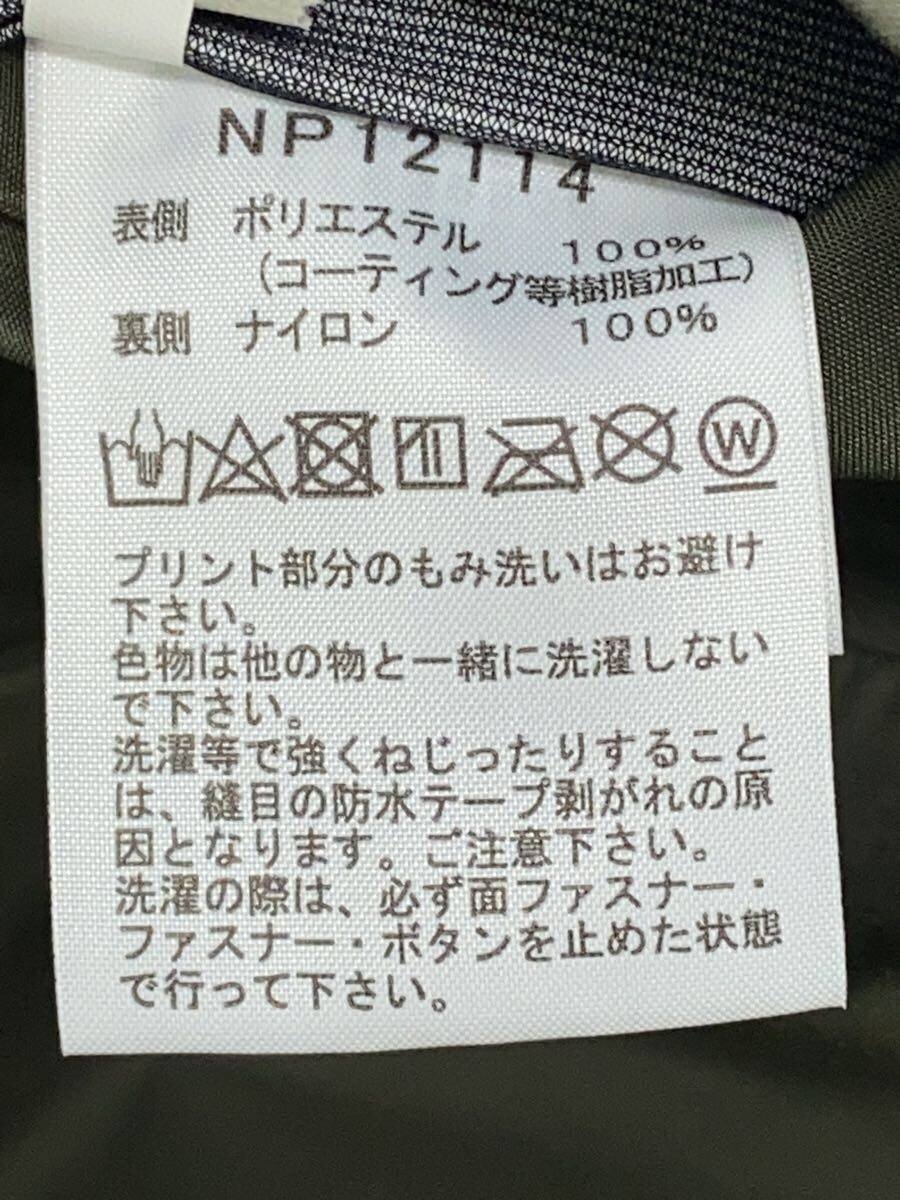 NP12114
表側 ポリエステル 100%
(コーティング等樹脂加工)
裏側 ナイロン 100%
W
プリント部分のもみ洗いはお避け
下さい。
色物は他の物と一緒に洗濯しない
で下さい。
洗濯等で強くねじったりすること
は、縫目の防水テープ剥がれの原
因となります。ご注意下さい。
洗濯の際は、必ず面ファスナー・
ファスナー・ボタンを止めた状態
で行って下さい。